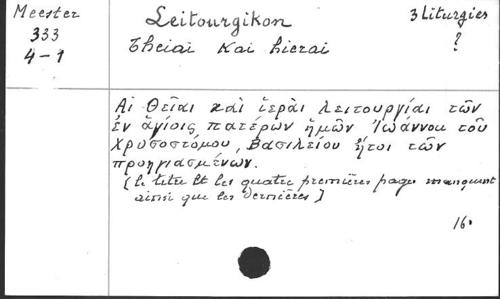 Meester
333
4-1
Leitourgikon
Theiai kai hierai
3 Liturgies
?
Αἱ Θεῖαι καὶ ἱεραὶ λειτουργίαι τῶν
ἐν ἁγίοις πατέρων ἡμῶν Ἰωάννου τοῦ
Χρυσοστόμου, Βασιλείου ἤτοι τῶν
προηγιασμένων.
(le titre et les quatre premières pages manquent
ainsi que les dernières]
16.